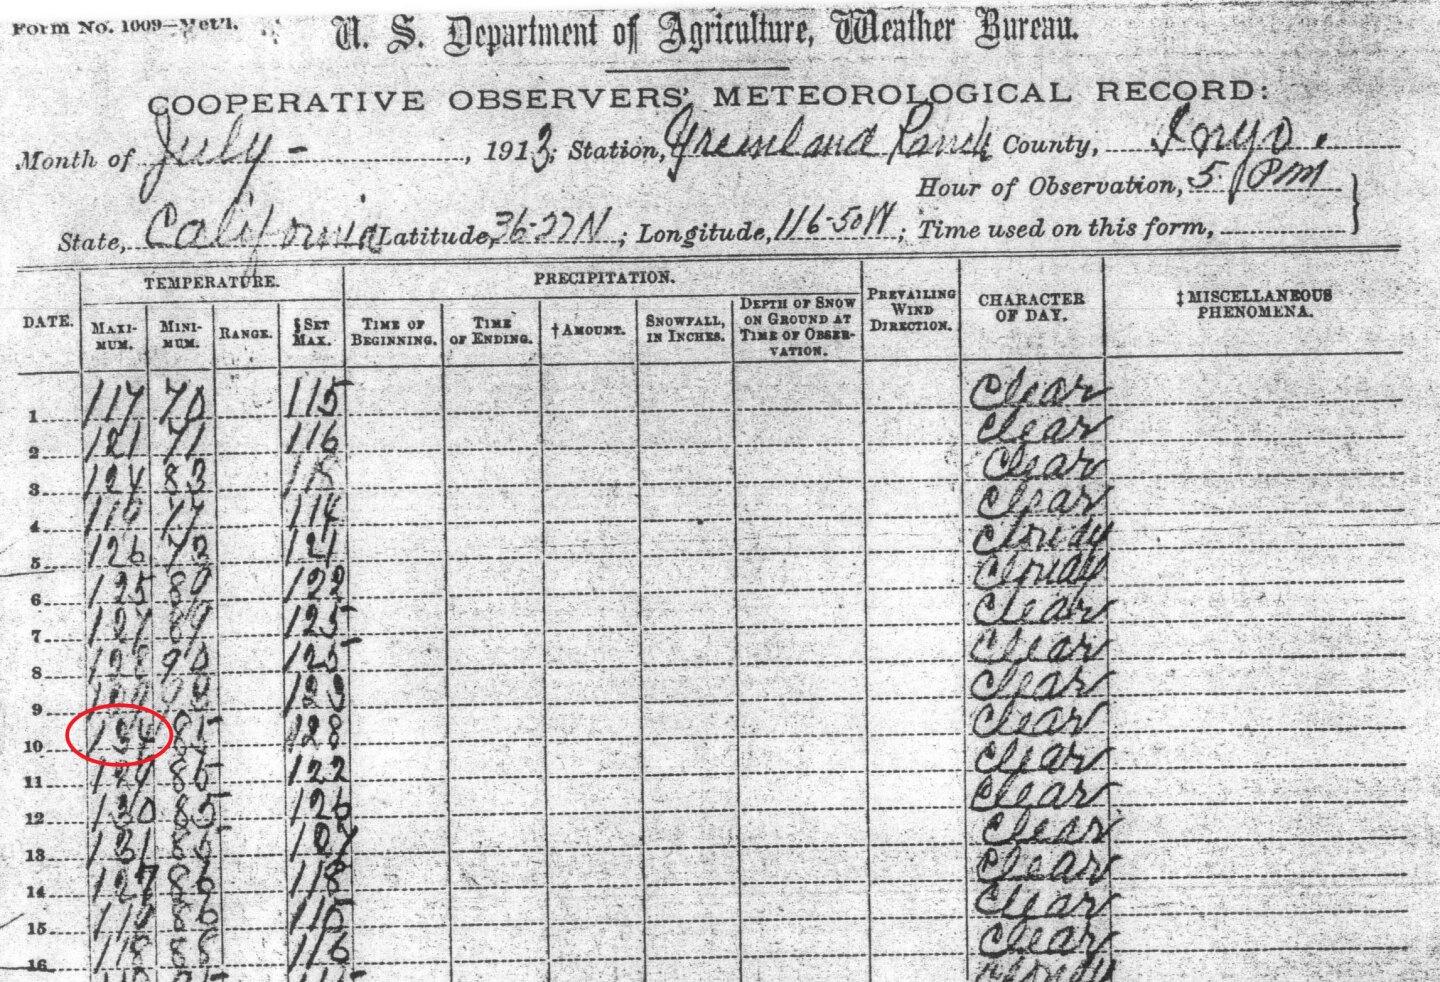 Form No. 1009—Met'l.
U. S. Department of Agriculture, Weather Bureau.
COOPERATIVE OBSERVERS' METEOROLOGICAL RECORD:
Month of July - , 1913; Station, Greenland Ranch County, Inyo.
Hour of Observation, 5 PM
State, California Latitude, 36-27N ; Longitude, 116-50W ; Time used on this form,
TEMPERATURE. PRECIPITATION.
DATE. MAXIMUM. MINIMUM. RANGE. §SET MAX. TIME OF BEGINNING. TIME OF ENDING. †AMOUNT. SNOWFALL, IN INCHES. DEPTH OF SNOW ON GROUND AT TIME OF OBSERVATION. PREVAILING WIND DIRECTION. CHARACTER OF DAY. ‡MISCELLANEOUS PHENOMENA.
1 117 70 115 Clear
2 121 71 116 Clear
3 124 83 Clear
4 77 114 Clear
5 126 121 Cloudy
6 125 89 122 Cloudy
7 127 89 125 Clear
8 128 90 125 Clear
9 123 Clear
10 134 85 128 Clear
11 129 85 122 Clear
12 130 85 126 Clear
13 131 85 107 Clear
14 127 86 118 Clear
15 115 Clear
16 118 88 116 Clear
Cloudy